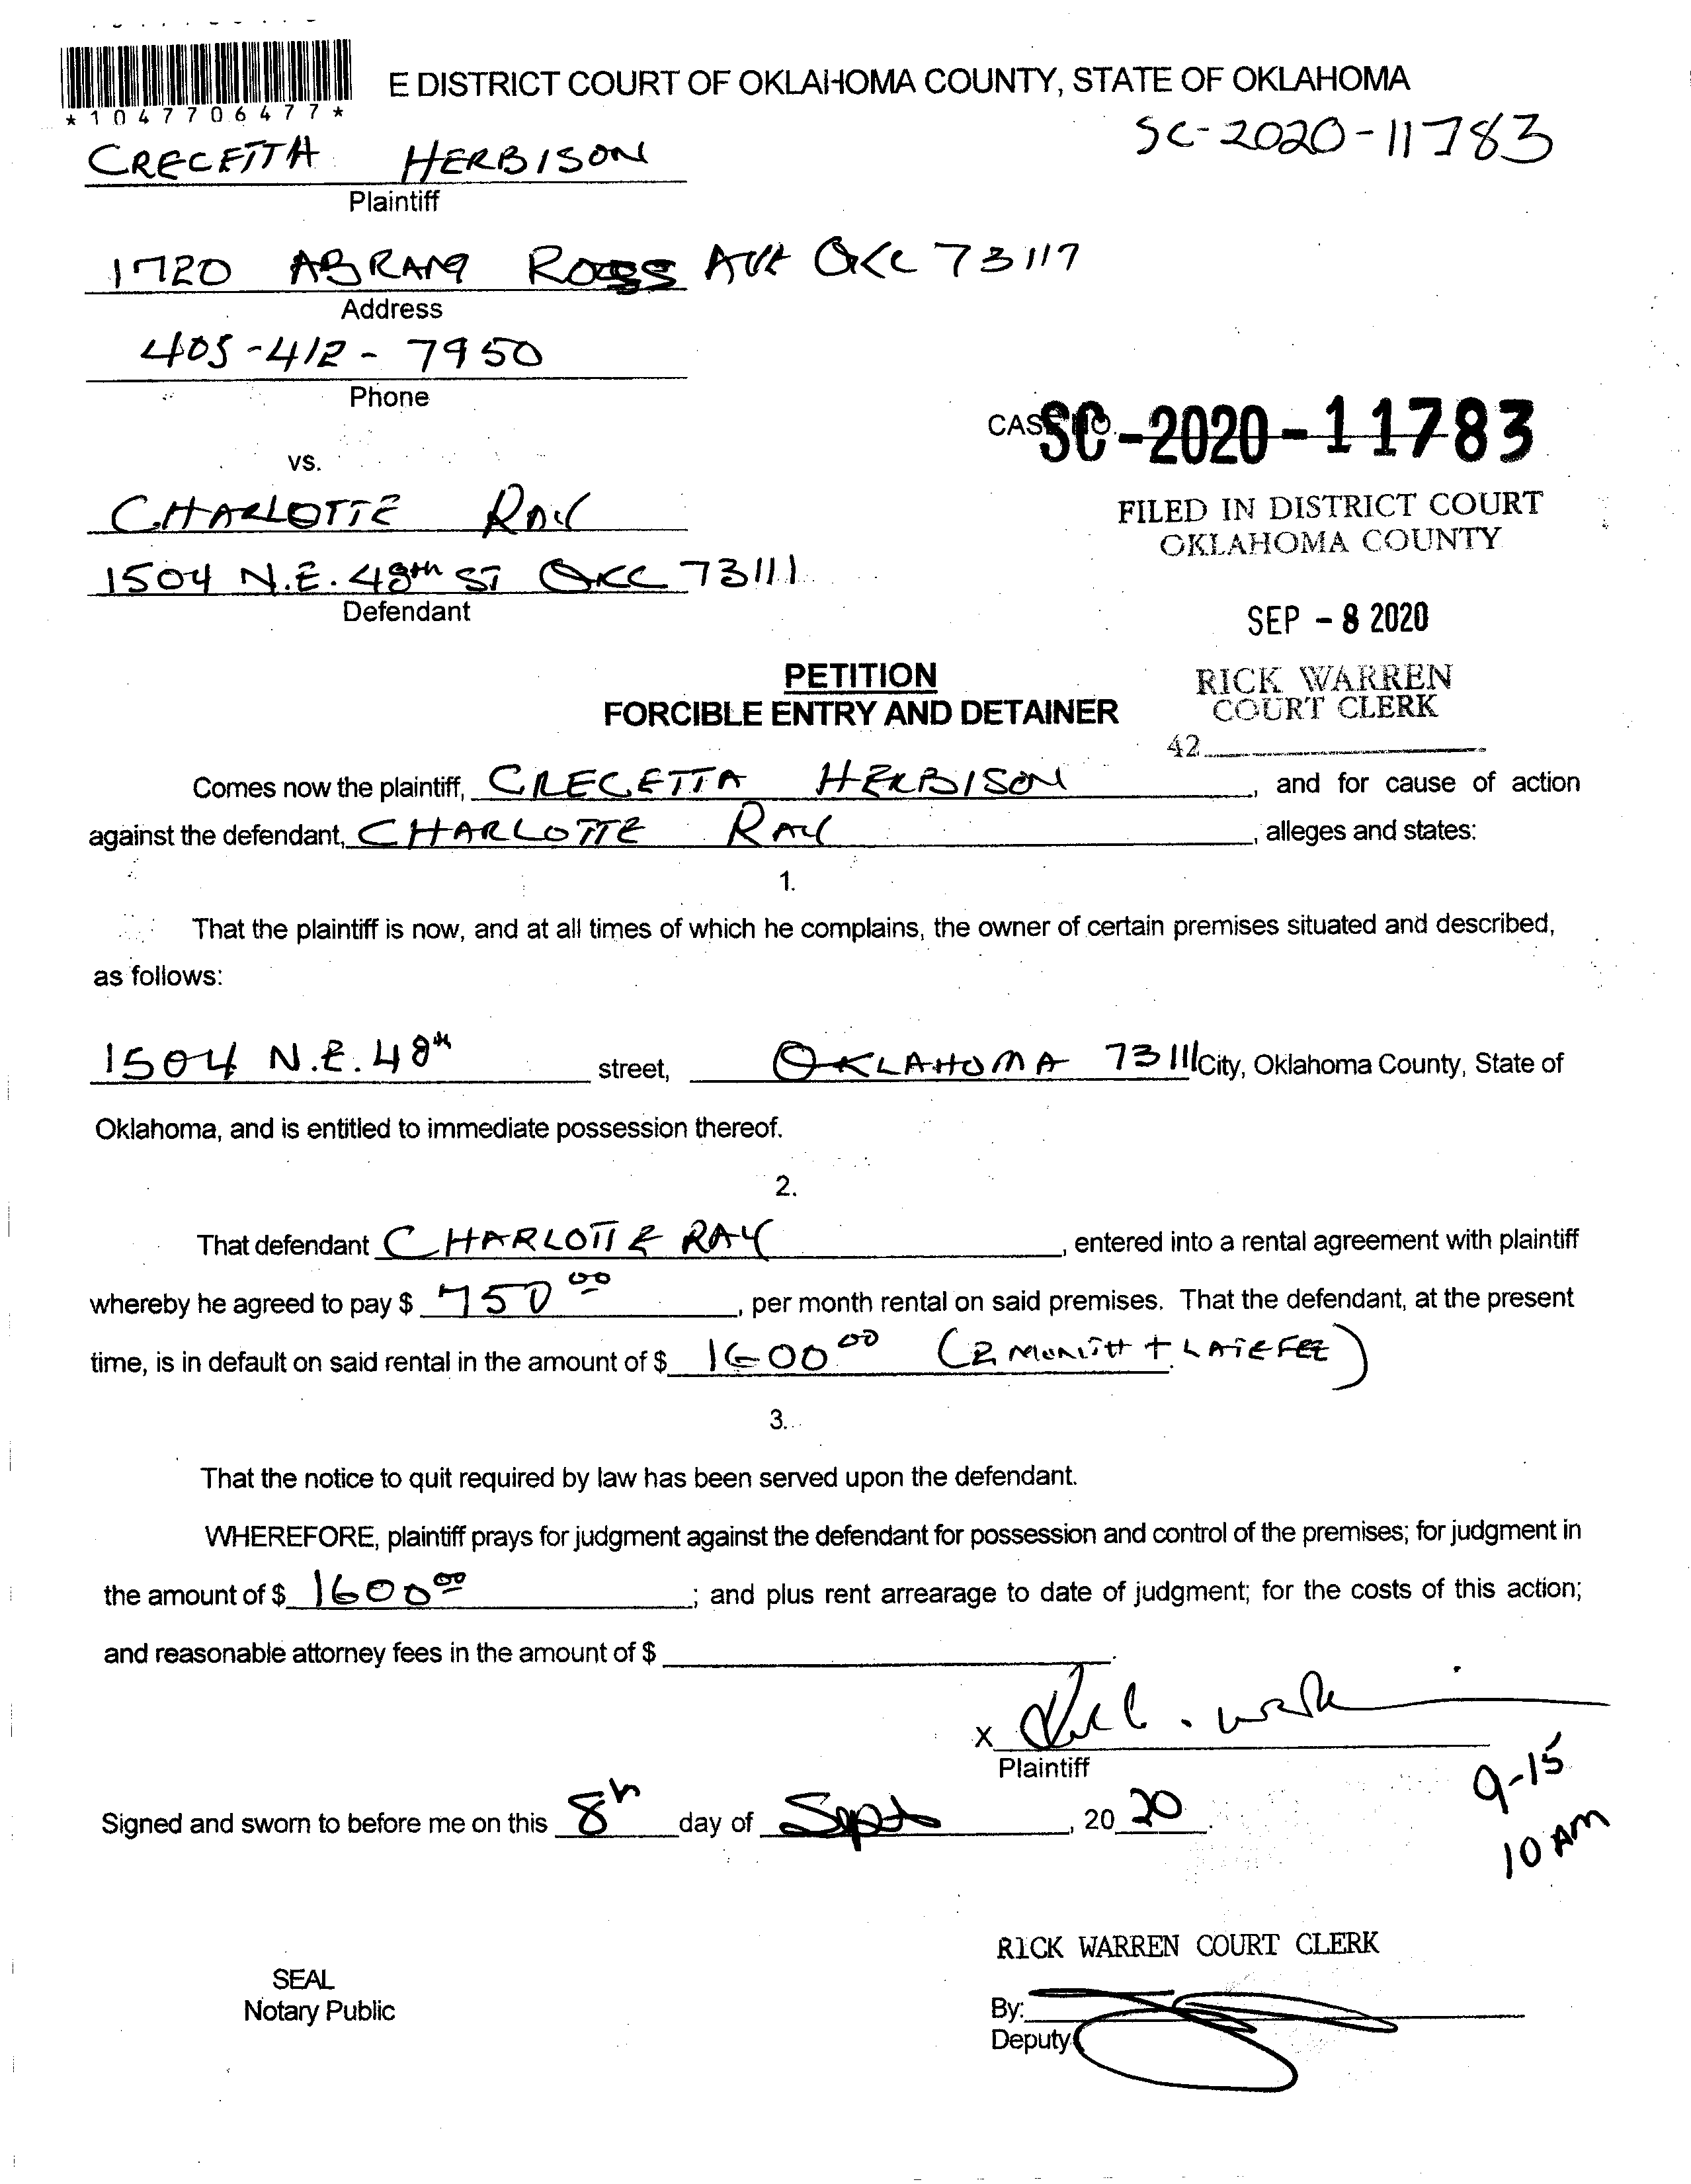 *1047706477*
E DISTRICT COURT OF OKLAHOMA COUNTY, STATE OF OKLAHOMA
SC-2020-11783
CRECETTA HERBISON
Plaintiff
1720 ABRAM ROSS AVE OKC 73117
Address
405-412-7950
Phone
CASE NO. SC-2020-11783
vs.
CHARLOTTE RAY
FILED IN DISTRICT COURT
OKLAHOMA COUNTY
1504 N.E. 48th ST OKC 73111
Defendant
SEP - 8 2020
PETITION
FORCIBLE ENTRY AND DETAINER
RICK WARREN
COURT CLERK
42
Comes now the plaintiff, CRECETTA HERBISON, and for cause of action
against the defendant, CHARLOTTE RAY, alleges and states:
1.
That the plaintiff is now, and at all times of which he complains, the owner of certain premises situated and described,
as follows:
1504 N.E. 48th street, OKLAHOMA 73111 City, Oklahoma County, State of
Oklahoma, and is entitled to immediate possession thereof.
2.
That defendant CHARLOTTE RAY, entered into a rental agreement with plaintiff
whereby he agreed to pay $ 750 00, per month rental on said premises. That the defendant, at the present
time, is in default on said rental in the amount of $ 1600 00 (2 MONTH + LATE FEE).
3.
That the notice to quit required by law has been served upon the defendant.
WHEREFORE, plaintiff prays for judgment against the defendant for possession and control of the premises; for judgment in
the amount of $ 1600 00; and plus rent arrearage to date of judgment; for the costs of this action;
and reasonable attorney fees in the amount of $
X
Plaintiff
9-15
10 AM
Signed and sworn to before me on this 8th day of Sept, 20 20.
RICK WARREN COURT CLERK
SEAL
Notary Public
By:
Deputy